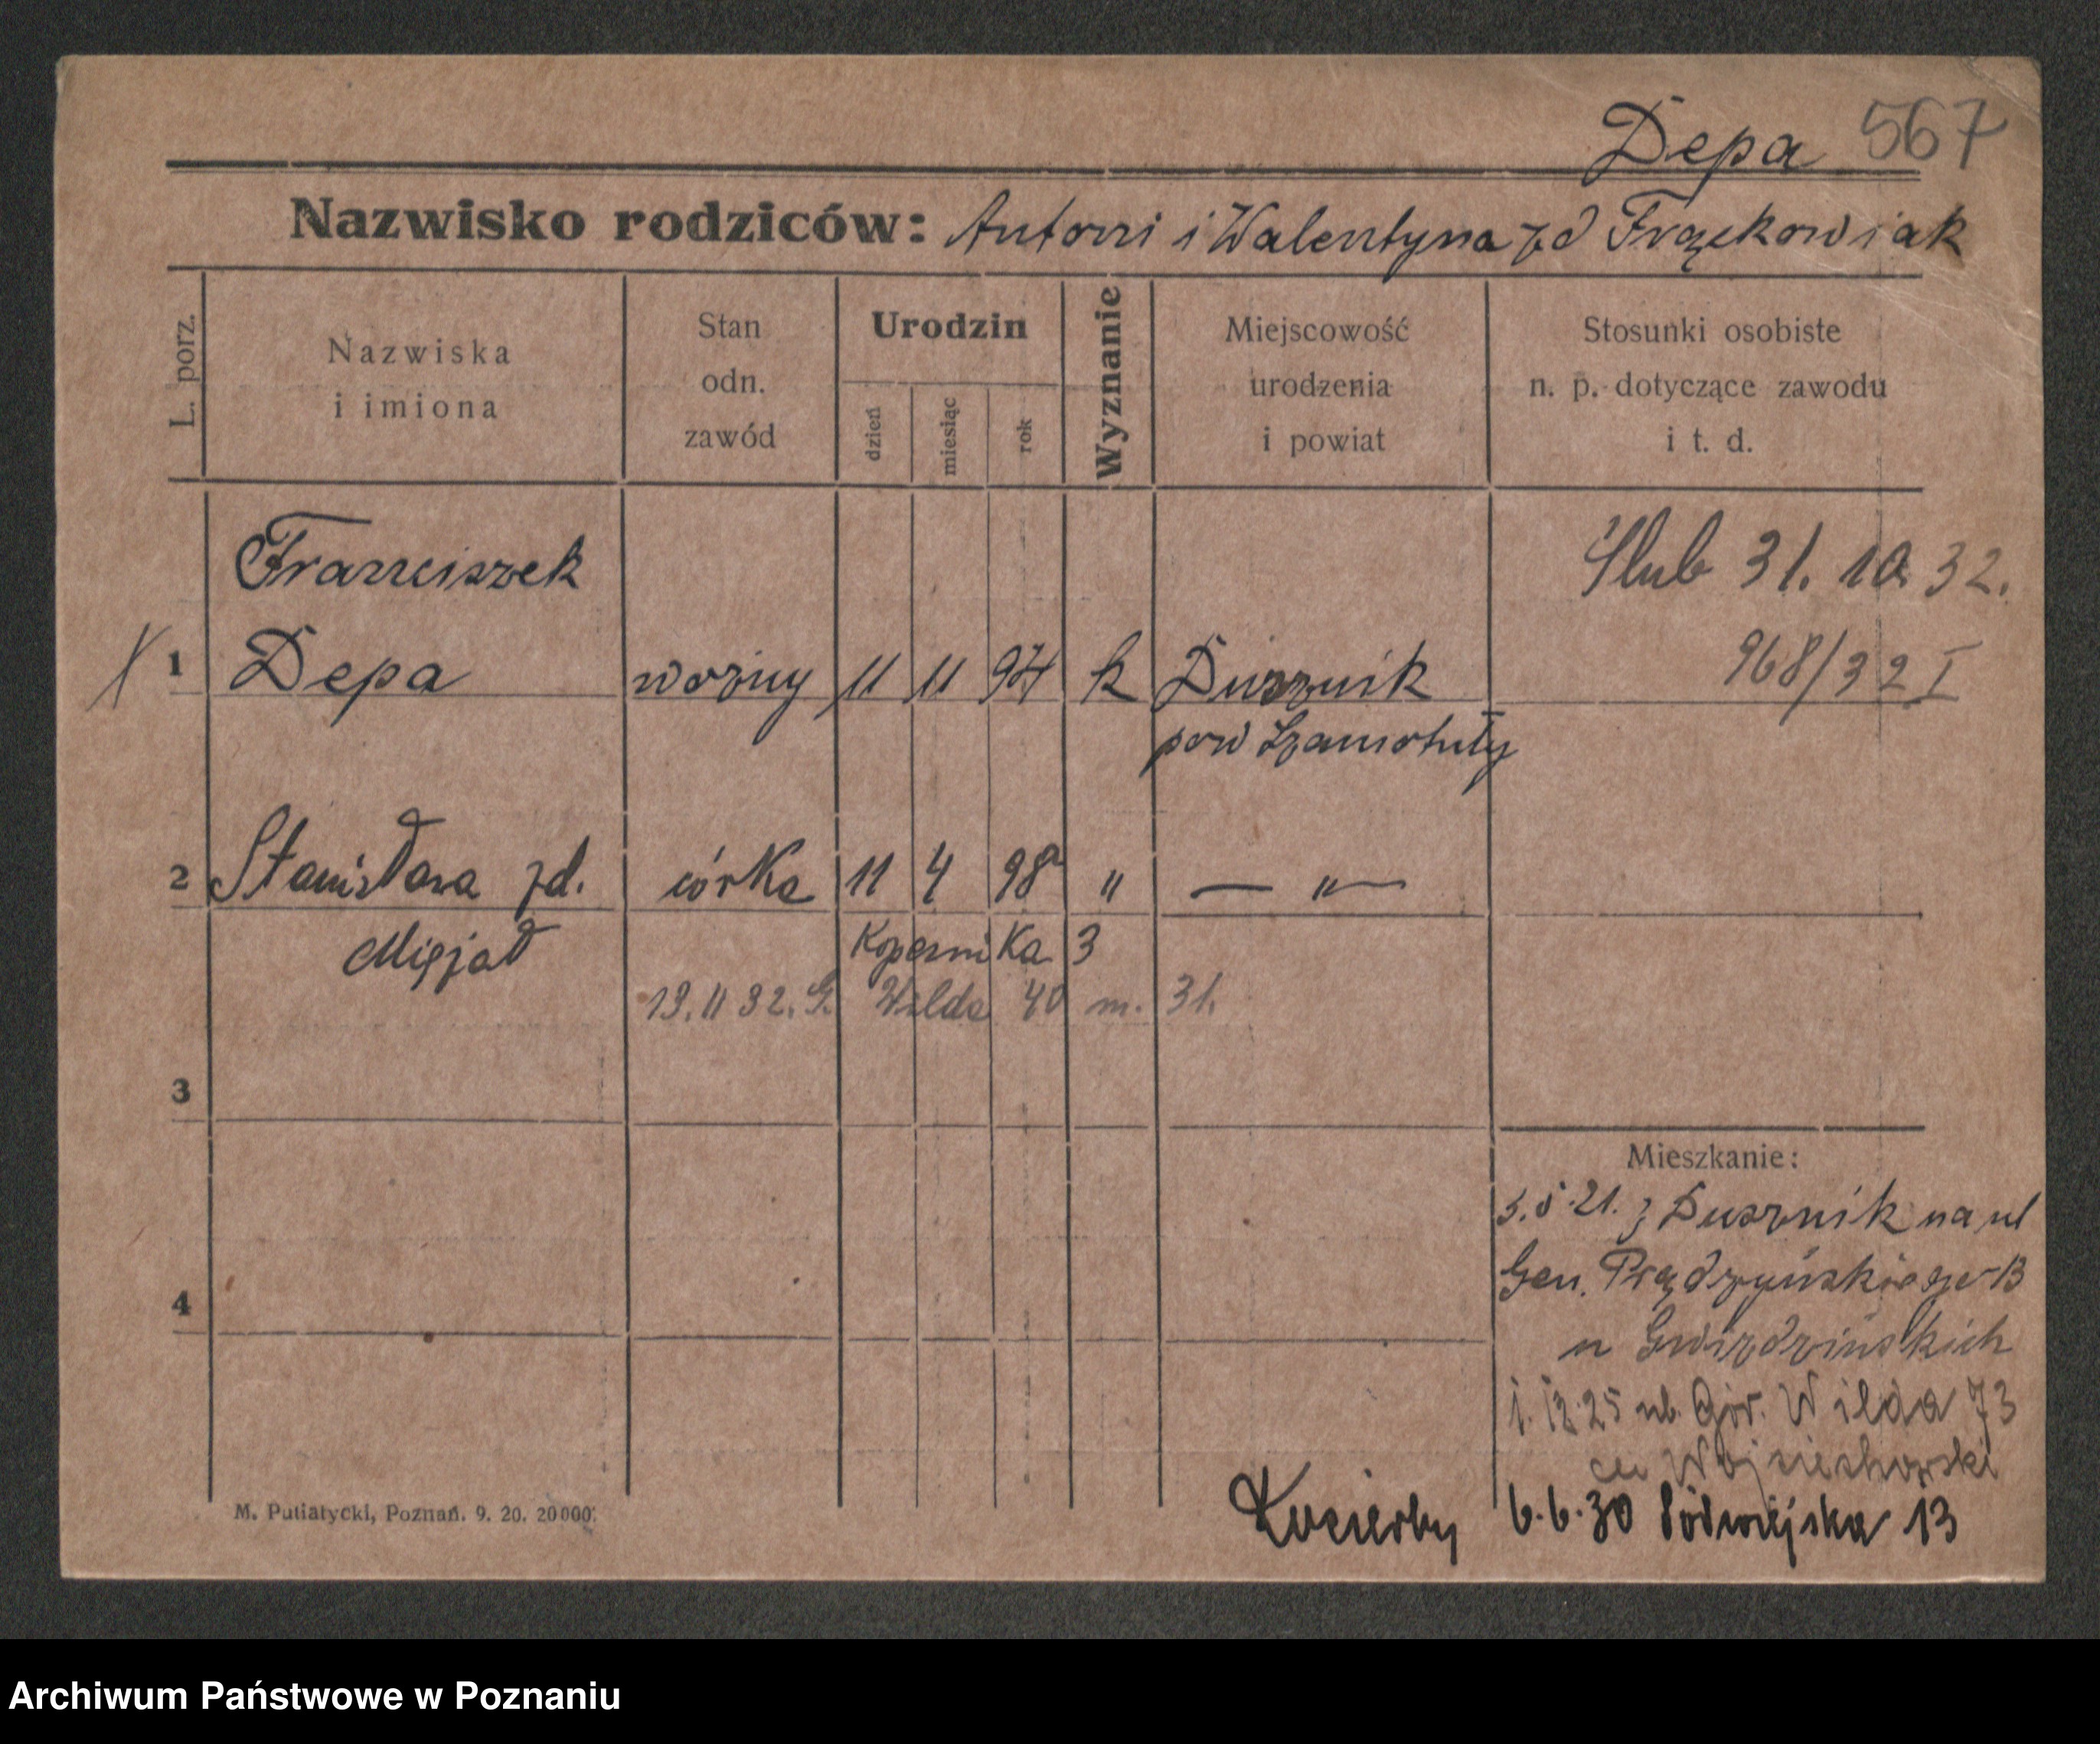 Depa 567
Nazwisko rodziców: Antoni i Walentyna zd Frąckowiak
L. porz.
Nazwiska
i imiona
Stan
odn.
zawód
Urodzin
dzień
miesiąc
rok
Wyznanie
Miejscowość
urodzenia
i powiat
Stosunki osobiste
n. p. dotyczące zawodu
i t. d.
Franciszek
Ślub 31. 10. 32.
1 Depa woźny 11 11 94 k Dusznik
968/32 I
pow Szamotuły
2 Stanisława zd. córka 11 4 98 " — " —
Migjał
Kopernika 3
19. 11 32. G. Wilda 40 m. 31.
3
4
Mieszkanie:
3.5.21. z Dusznik na ul
Gen. Prądzyńskiego 13
u Gwizdzińskich
1. 12. 25 ul. Gór. Wilda 73
Wojciechowski
6.6.30 Półwiejska 13
M. Putiatycki, Poznań. 9. 20. 20000.
Archiwum Państwowe w Poznaniu